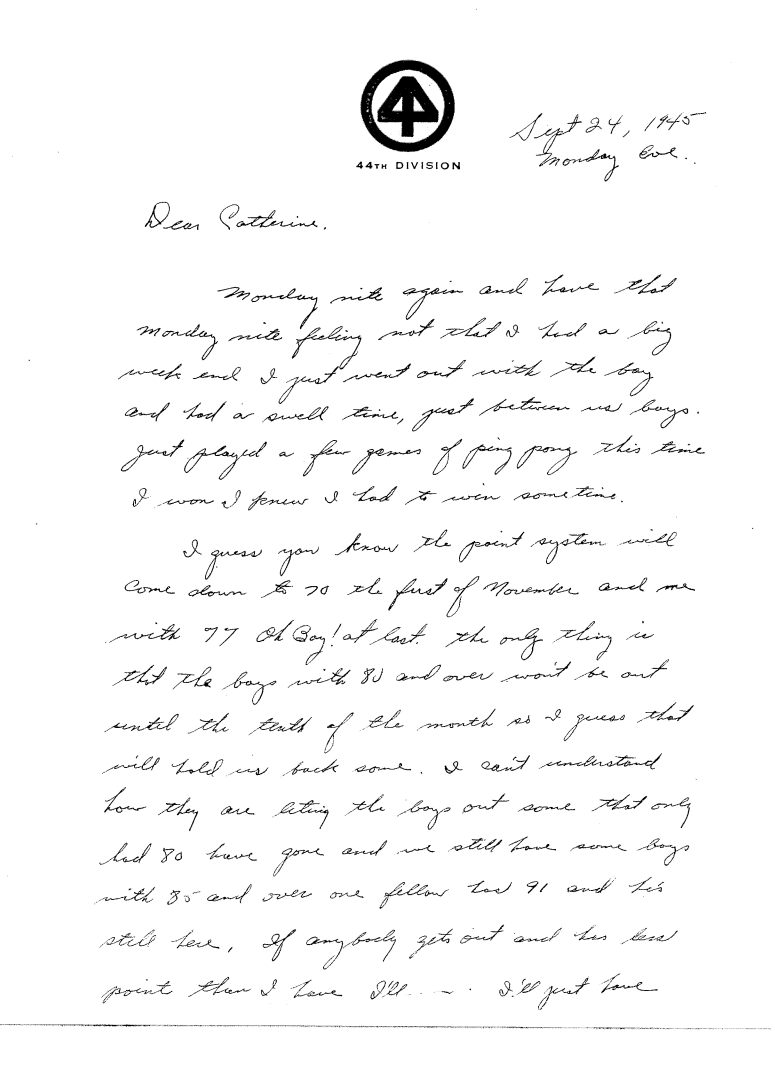 44TH DIVISION
Sept 24, 1945
Monday Eve..
Dear Catherine.
Monday nite again and have that
Monday nite feeling not that I had a big
week end I just went out with the boy
and had a swell time, just between us boys.
Just played a few games of ping pong this time
I won I knew I had to win sometime.
I guess you know the point system will
come down to 70 the first of November and me
with 77 Oh Boy! at last. the only thing is
that the boys with 80 and over won't be out
until the tenth of the month so I guess that
will hold us back some. I can't understand
how they are leting the boys out some that only
had 80 have gone and we still have some boys
with 85 and over one fellow has 91 and his
still here, If anybody gets out and has less
point than I have I'll --- . I'll just have